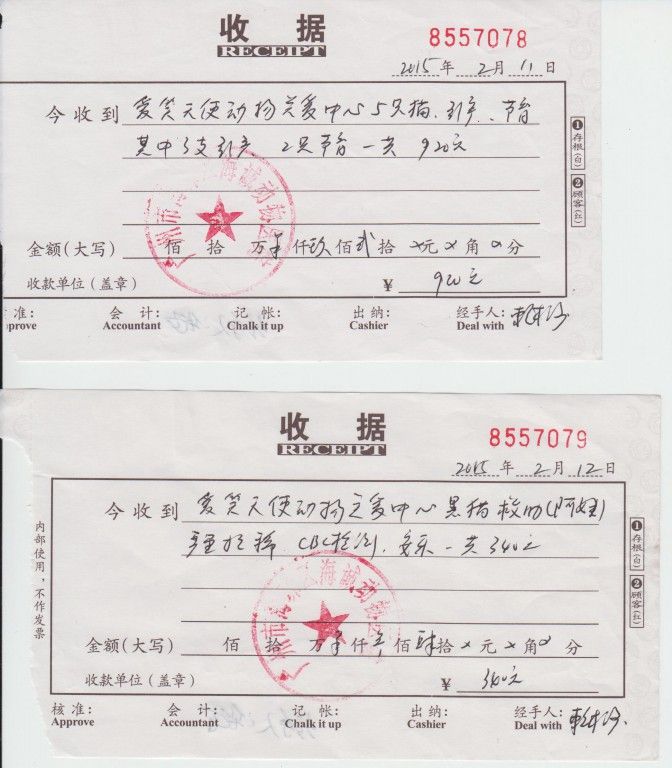 收 据
RECEIPT
8557078
2015年 2月 11日
今收到 爱笑天使动物关爱中心5只猫、引产、节育
其中3支引产 2只节育一共 920元
金额(大写) 佰 拾 万 仟玖佰贰拾 元 角 分
收款单位(盖章) ¥ 920元
准: 会 计: 记 帐: 出 纳: 经手人:
prove Accountant Chalk it up Cashier Deal with
❶存根(白)
❷顾客(红)
收 据
RECEIPT
8557079
2015年 2月 12日
今收到 爱笑天使动物关爱中心 黑猫救助
CBC检测、安乐一共340元
金额(大写) 佰 拾 万 仟叁佰肆拾 元 角 分
收款单位(盖章) ¥ 340元
核 准: 会 计: 记 帐: 出 纳: 经手人:
Approve Accountant Chalk it up Cashier Deal with
内部使用,不作发票
❶存根(白)
❷顾客(红)